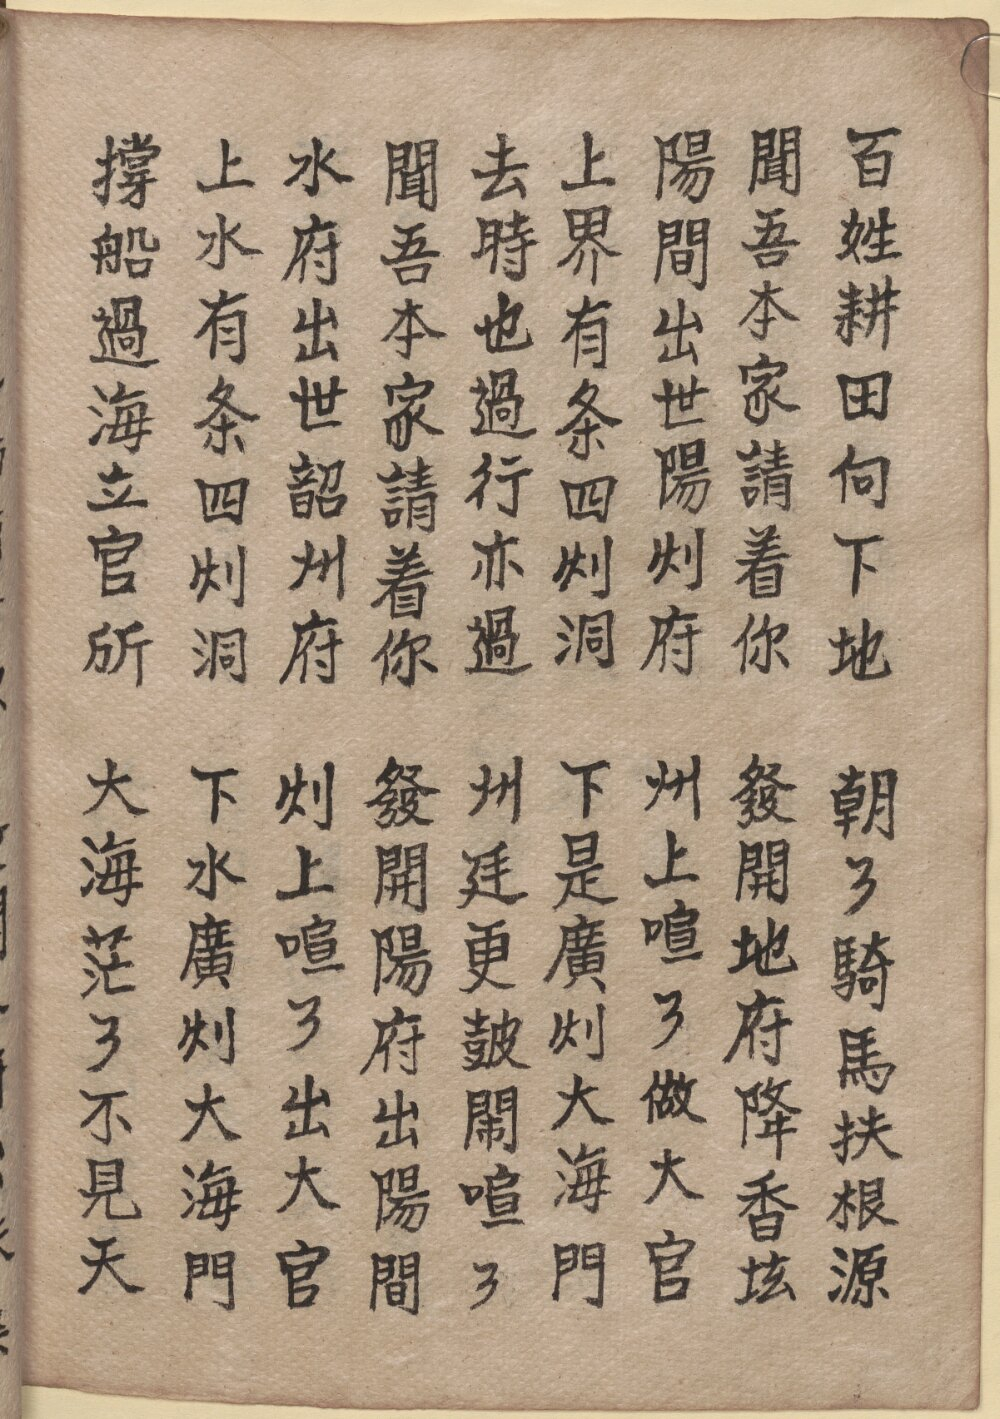 百姓耕田向下地 朝了騎馬扶根源
聞吾本家請着你 發開地府降香坛
陽間出世陽州府 州上喧了做大官
上界有条四州洞 下是廣州大海門
去時也過行亦過 州廷更鼓鬧喧了
聞吾本家請着你 發開陽府出陽間
水府出世韶州府 州上喧了出大官
上水有条四州洞 下水廣州大海門
撐船過海立官所 大海茫了不見天